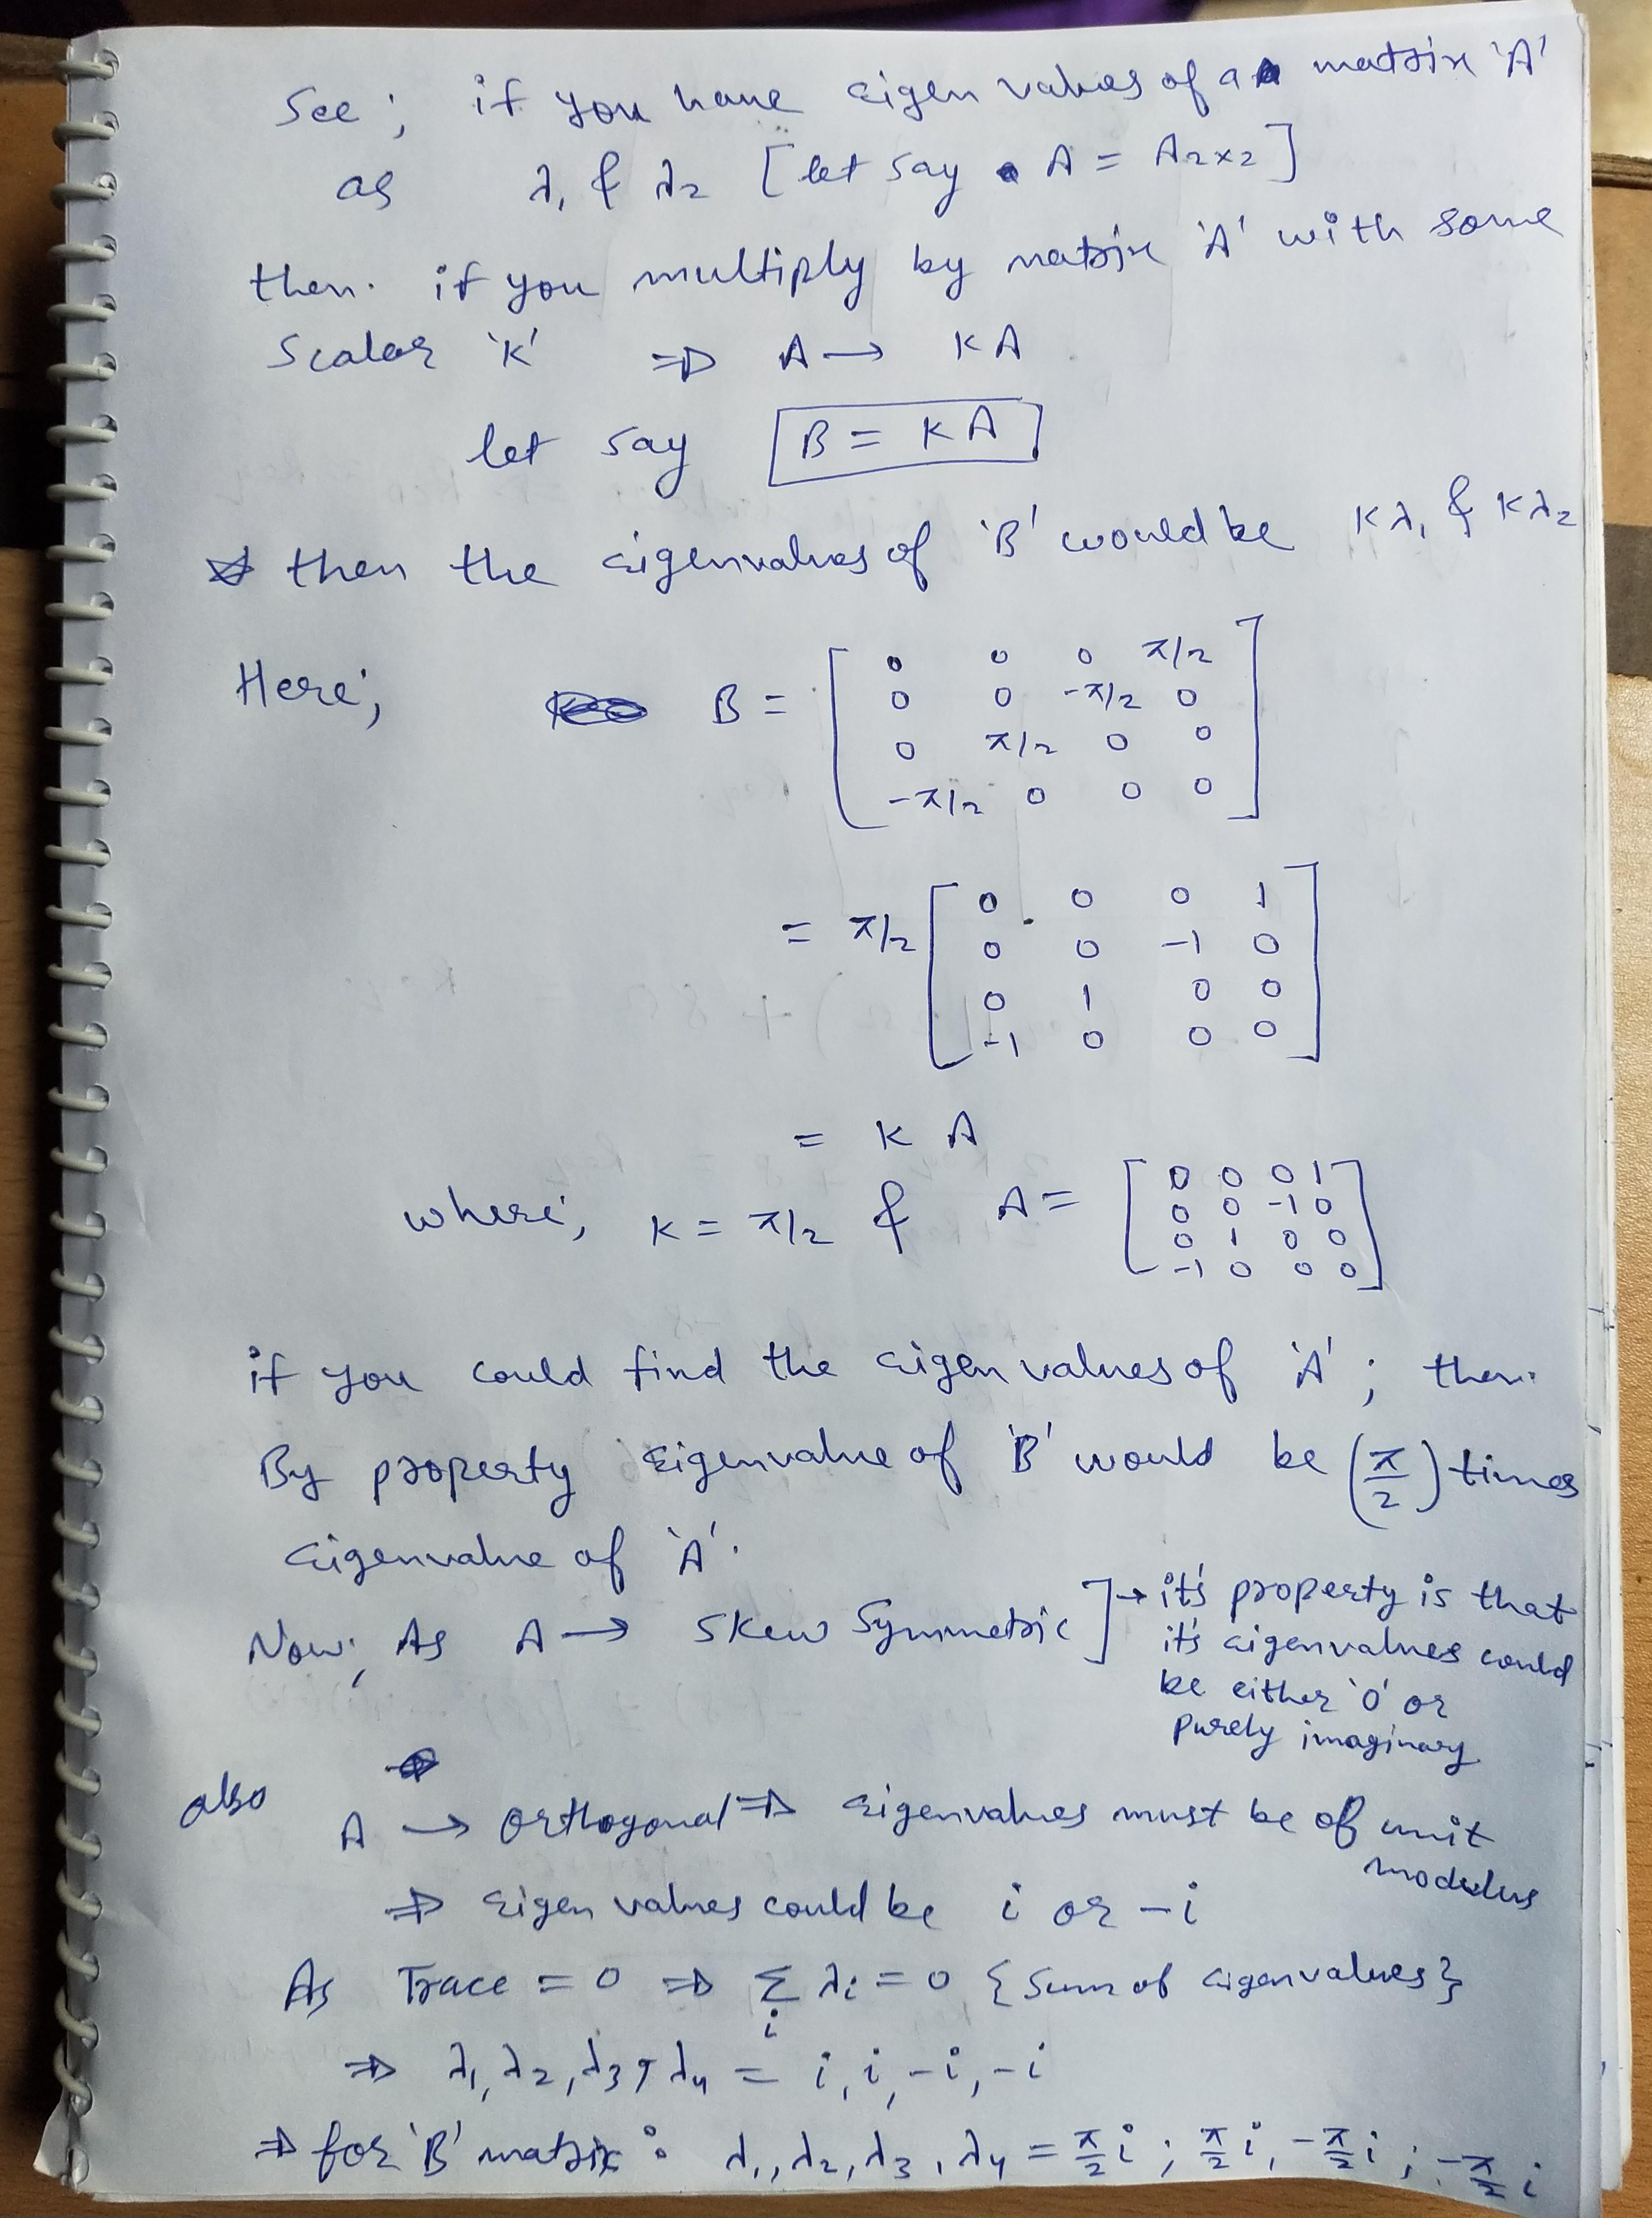 See; if you have eigen values of a matrix 'A'
as λ₁ & λ₂ [let say A = A₂ₓ₂]
then. if you multiply by matrix 'A' with some
Scalar 'K' ⇒ A → KA
let say B = KA
then the eigenvalues of 'B' would be Kλ₁ & Kλ₂
Here; B = [
0 0 0 π/2
0 0 -π/2 0
0 π/2 0 0
-π/2 0 0 0
]
= π/2 [
0 0 0 1
0 0 -1 0
0 1 0 0
-1 0 0 0
]
= K A
where; K = π/2 & A = [
0 0 0 1
0 0 -1 0
0 1 0 0
-1 0 0 0
]
if you could find the eigen values of 'A'; then.
By property eigenvalue of 'B' would be (π/2) times
eigenvalue of 'A'.
Now; As A → Skew Symmetric ] → it's property is that
it's eigenvalues could
be either '0' or
purely imaginary
also A → orthogonal ⇒ eigenvalues must be of unit
modulus
⇒ eigen values could be i or -i
As Trace = 0 ⇒ Σᵢ λi = 0 {Sum of eigenvalues}
⇒ λ₁, λ₂, λ₃, λ₄ = i, i, -i, -i
⇒ for 'B' matrix: λ₁, λ₂, λ₃, λ₄ = π/2 i; π/2 i, -π/2 i; -π/2 i